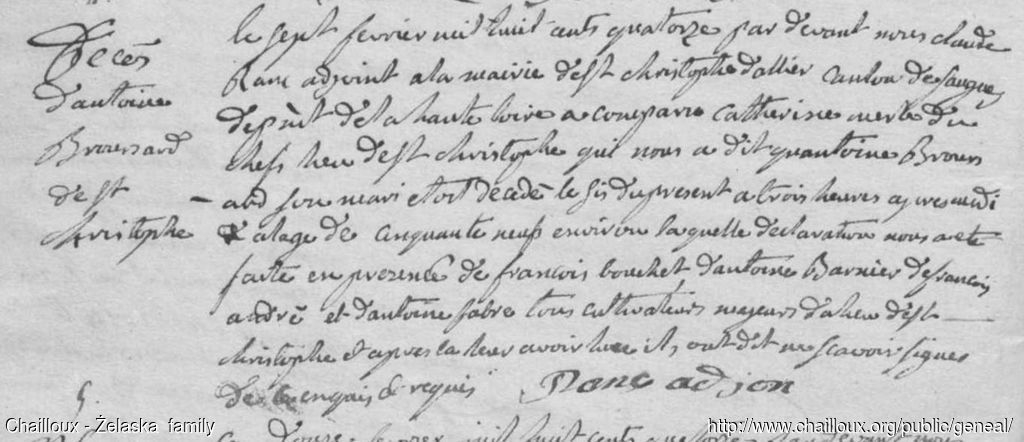 Décès
d'antoine
Broussard
de st
christophe
le sept fevrier mil huit cents quatorze par devant nous claude
Planc adjoint a la mairie de st christophe d'allier canton de saugues
dep.t de la haute loire a comparu catherine merle du
chefs lieu de st christophe qui nous a dit qu'antoine Brouss
ard son mari etoit décédé le six du present a trois heures apres midi
a lage de cinquante neuf environ laquelle declaration nous a ete
faite en presence de francois bouchet d'antoine Barnier de francois
andré et d'antoine fabre tous cultivateurs majeurs du lieu de st
christophe et apres la leur avoir lue ils ont dit ne scavoir signer
de ce enquis & requis Planc adjoin
5.
Chailloux - Żelaska family
http://www.chailloux.org/public/geneal/